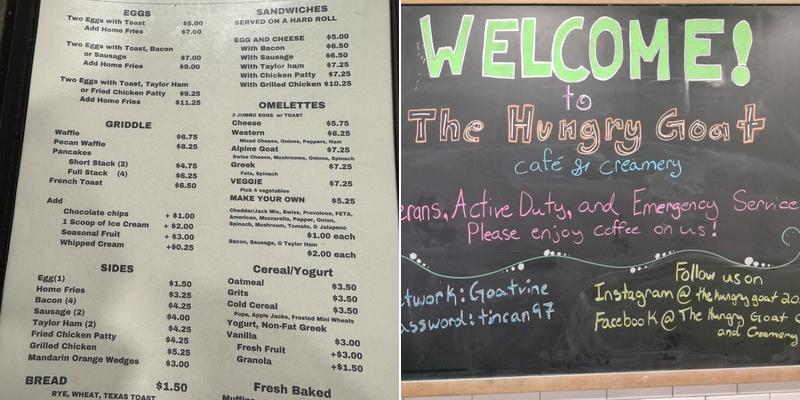 EGGS
Two Eggs with Toast $5.00
Add Home Fries $7.00
Two Eggs with Toast, Bacon
or Sausage $7.00
Add Home Fries $9.00
Two Eggs with Toast, Taylor Ham
or Fried Chicken Patty $9.25
Add Home Fries $11.25
GRIDDLE
Waffle $6.75
Pecan Waffle $8.25
Pancakes
Short Stack (2) $4.75
Full Stack (4) $6.25
French Toast $6.50
Add
Chocolate chips + $1.00
1 Scoop of Ice Cream + $2.00
Seasonal Fruit + $3.00
Whipped Cream +$0.25
SIDES
Egg(1) $1.50
Home Fries $3.25
Bacon (4) $4.25
Sausage (2) $4.00
Taylor Ham (2) $4.25
Fried Chicken Patty $4.25
Grilled Chicken $5.25
Mandarin Orange Wedges $3.00
BREAD $1.50
RYE, WHEAT, TEXAS TOAST
SANDWICHES
SERVED ON A HARD ROLL
EGG AND CHEESE $5.00
With Bacon $6.50
With Sausage $6.50
With Taylor ham $7.25
With Chicken Patty $7.25
With Grilled Chicken $10.25
OMELETTES
3 JUMBO EGGS w/ TOAST
Cheese $5.75
Western $8.25
Mixed Cheese, Onions, Peppers, Ham
Alpine Goat $7.25
Swiss Cheese, Mushrooms, Onions, Spinach
Greek $7.25
Feta, Spinach
VEGGIE $7.25
Pick 4 vegetables
MAKE YOUR OWN $5.25
Cheddar/Jack Mix, Swiss, Provolone, FETA,
American, Mozzarella, Pepper, Onion,
Spinach, Mushroom, Tomato, & Jalapeno
$1.00 each
Bacon, Sausage, & Taylor Ham
$2.00 each
Cereal/Yogurt
Oatmeal $3.50
Grits $3.50
Cold Cereal $3.50
Pops, Apple Jacks, Frosted Mini Wheats
Yogurt, Non-Fat Greek
Vanilla $3.00
Fresh Fruit +$3.00
Granola +$1.50
Fresh Baked
WELCOME!
to
The Hungry Goat
café & creamery
erans, Active Duty, and Emergency Service
Please enjoy coffee on us!
etwork: Goatvine
assword: tincan97
Follow us on
Instagram @ thehungrygoat20
Facebook @ The Hungry Goat C
and Creamery